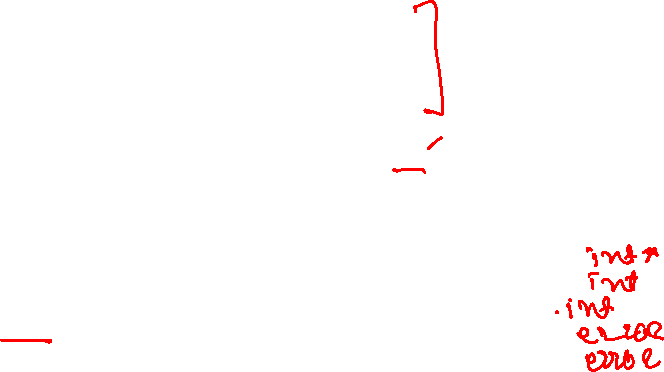 ]
int *
int
.int
error
error